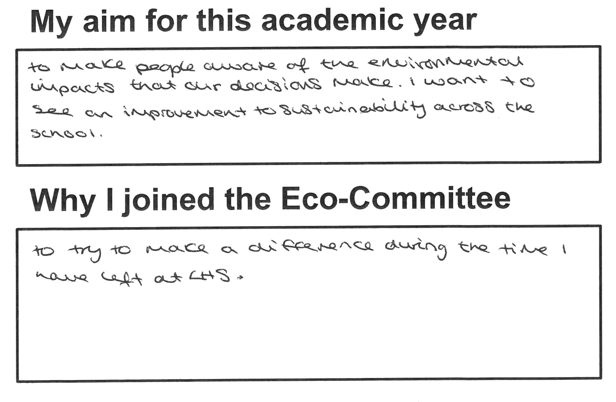 My aim for this academic year
to make people aware of the environmental
impacts that our decisions make. I want to
see an improvement to sustainability across the
school.
Why I joined the Eco-Committee
to try to make a difference during the time I
have left at LHS.